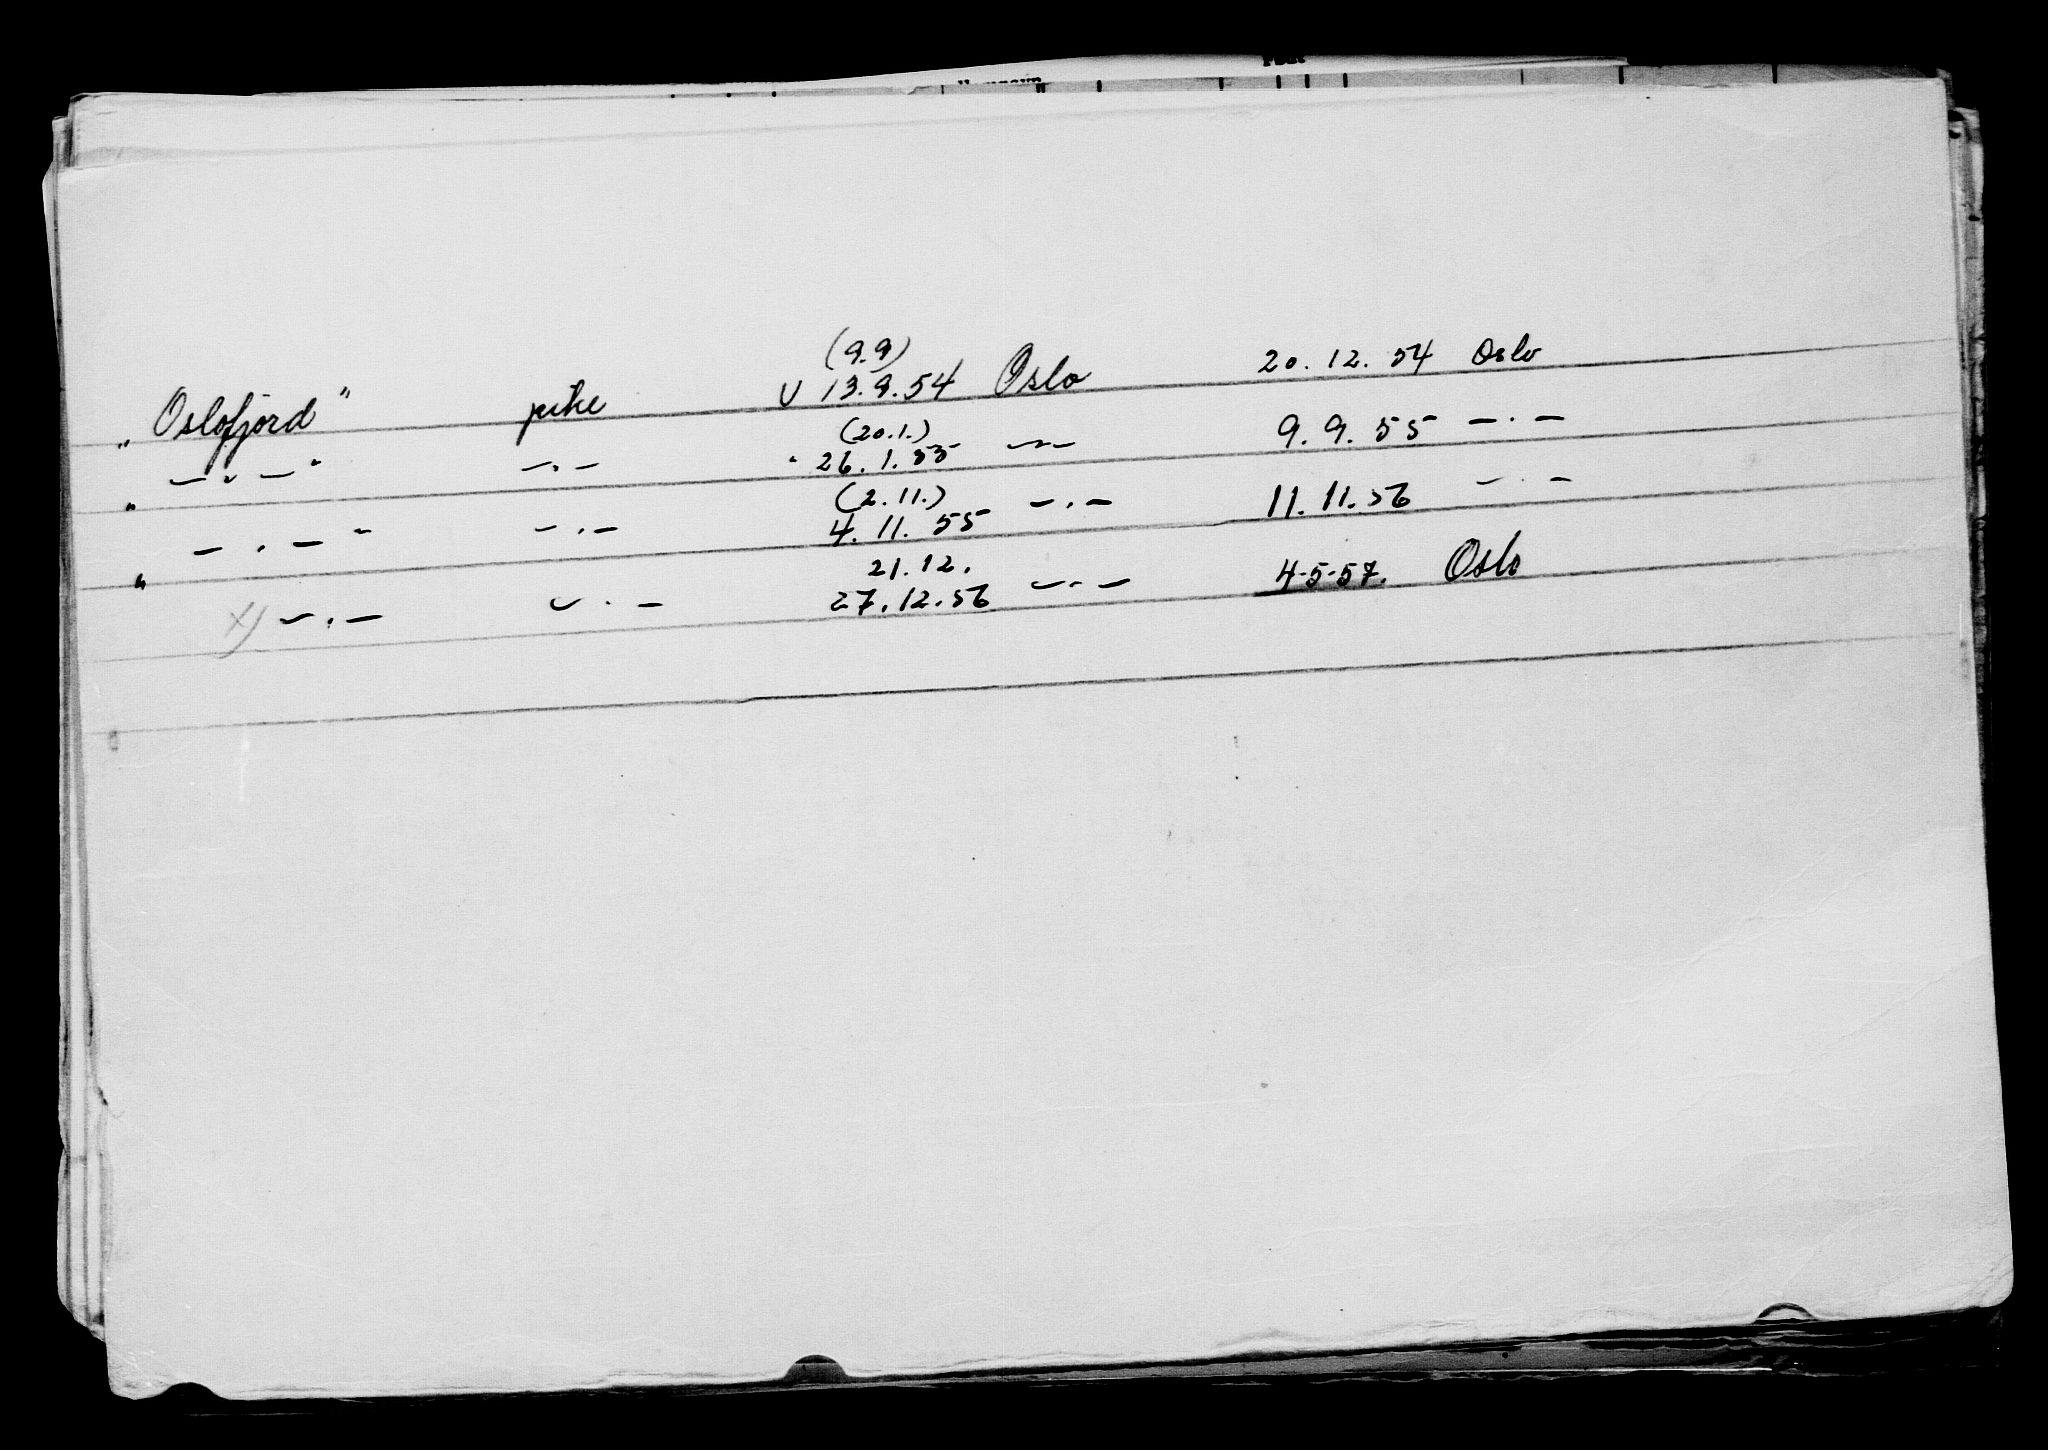 (9.9)
„Oslofjord" pike v 13.9.54 Oslo 20.12.54 Oslo
(20.1.)
„ — „ — " — . — " 26.1.55 — „ — 9.9.55 — . —
(2.11.)
„ — . — " — . — 4.11.55 — . — 11.11.56 — . —
21.12.
x) — . — — . — 27.12.56 — . — 4-5-57. Oslo